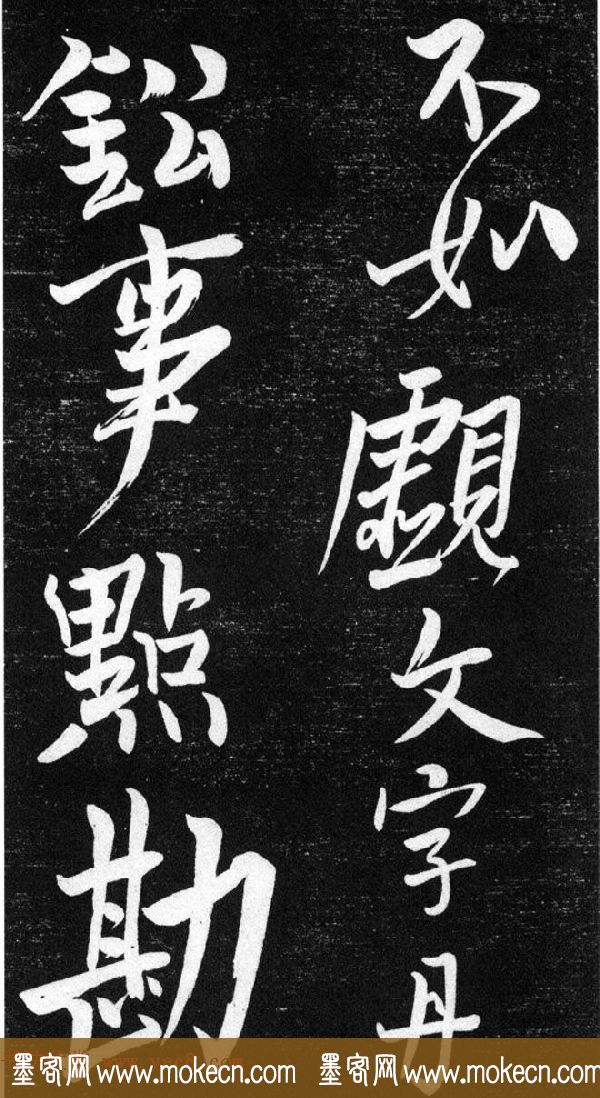 不如覷文字丹
鈆事點勘
墨客网 www.mokecn.com 墨客网 www.mokecn.com